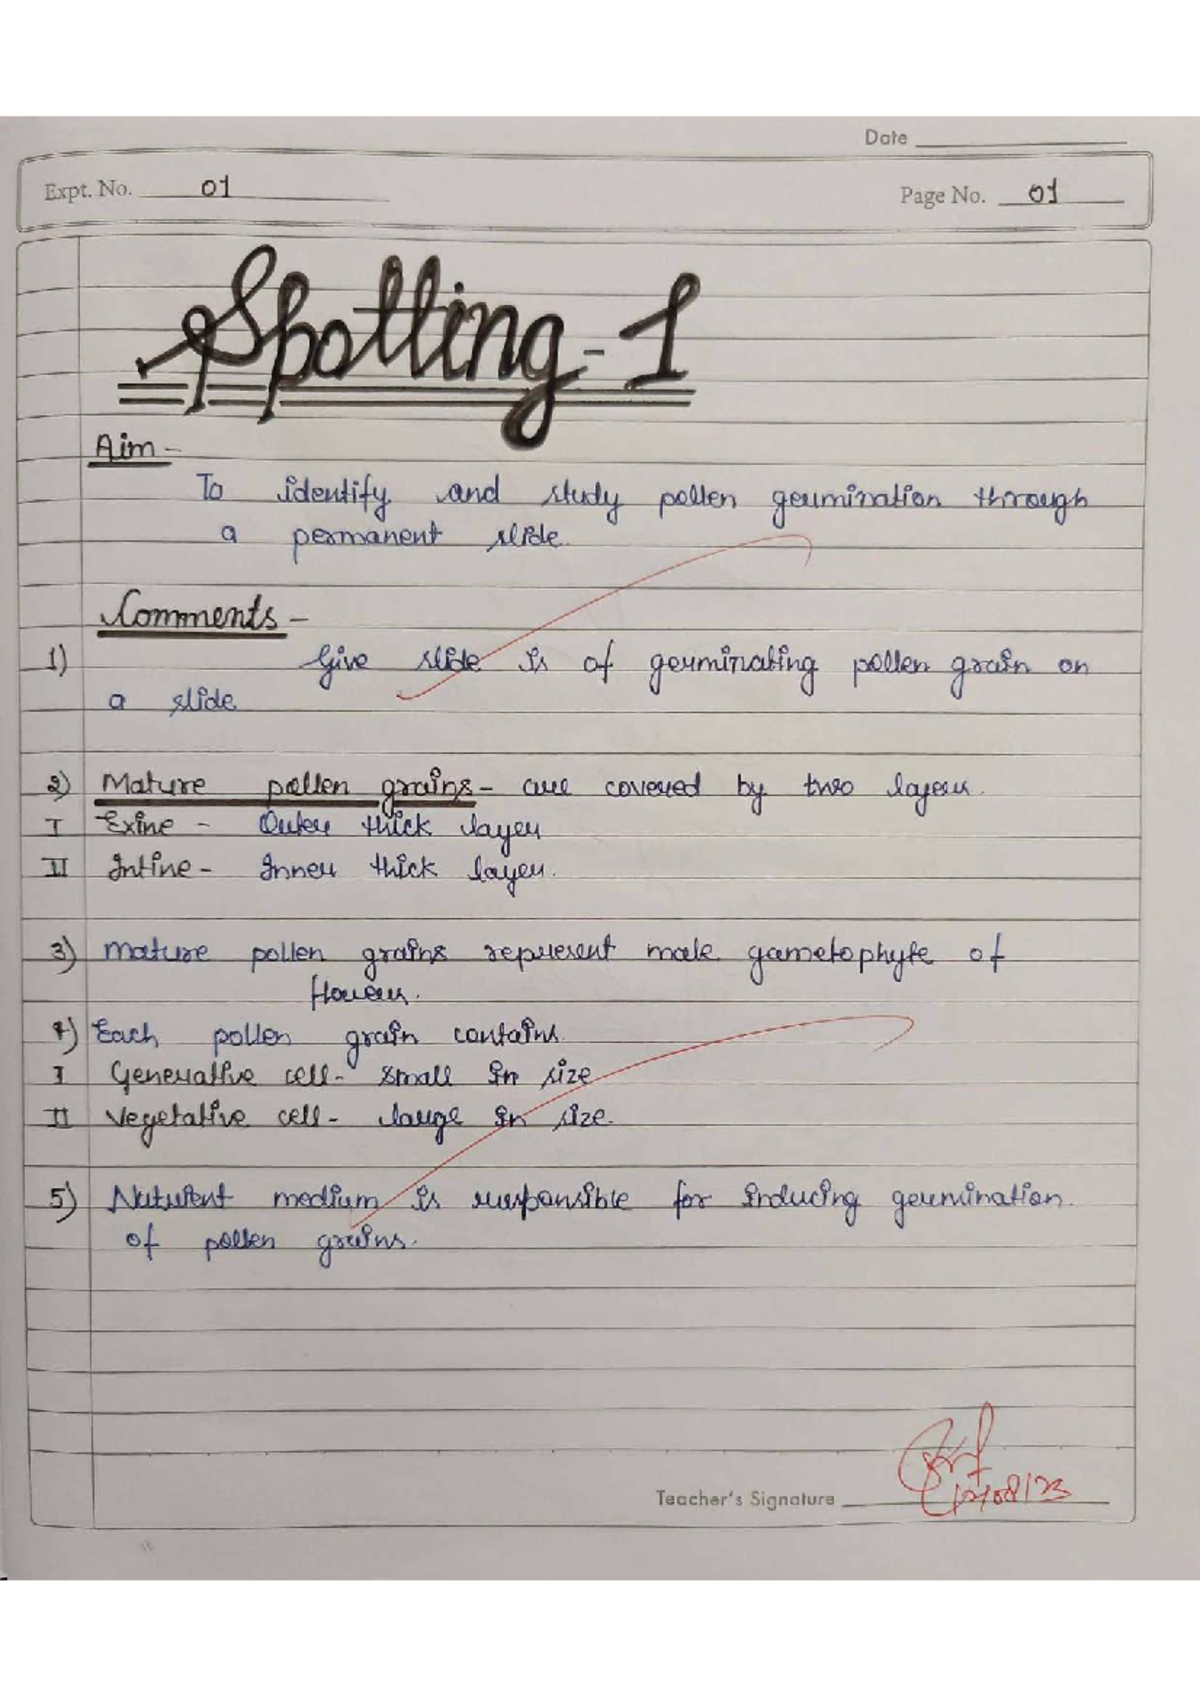 Date
Expt. No. 01
Page No. 01
Spotting-1
Aim -
To identify and study pollen germination through
a permanent slide.
Comments -
1) Give slide is of germinating pollen grain on
a slide
2) Mature pollen grains - are covered by two layers.
I Exine - Outer thick layer
II Intine - Inner thick layer.
3) Mature pollen grains represent male gametophyte of
flowers.
4) Each pollen grain contains.
I Generative cell - small in size
II Vegetative cell - large in size.
5) Nutrient medium is responsible for inducing germination.
of pollen grains.
Teacher's Signature